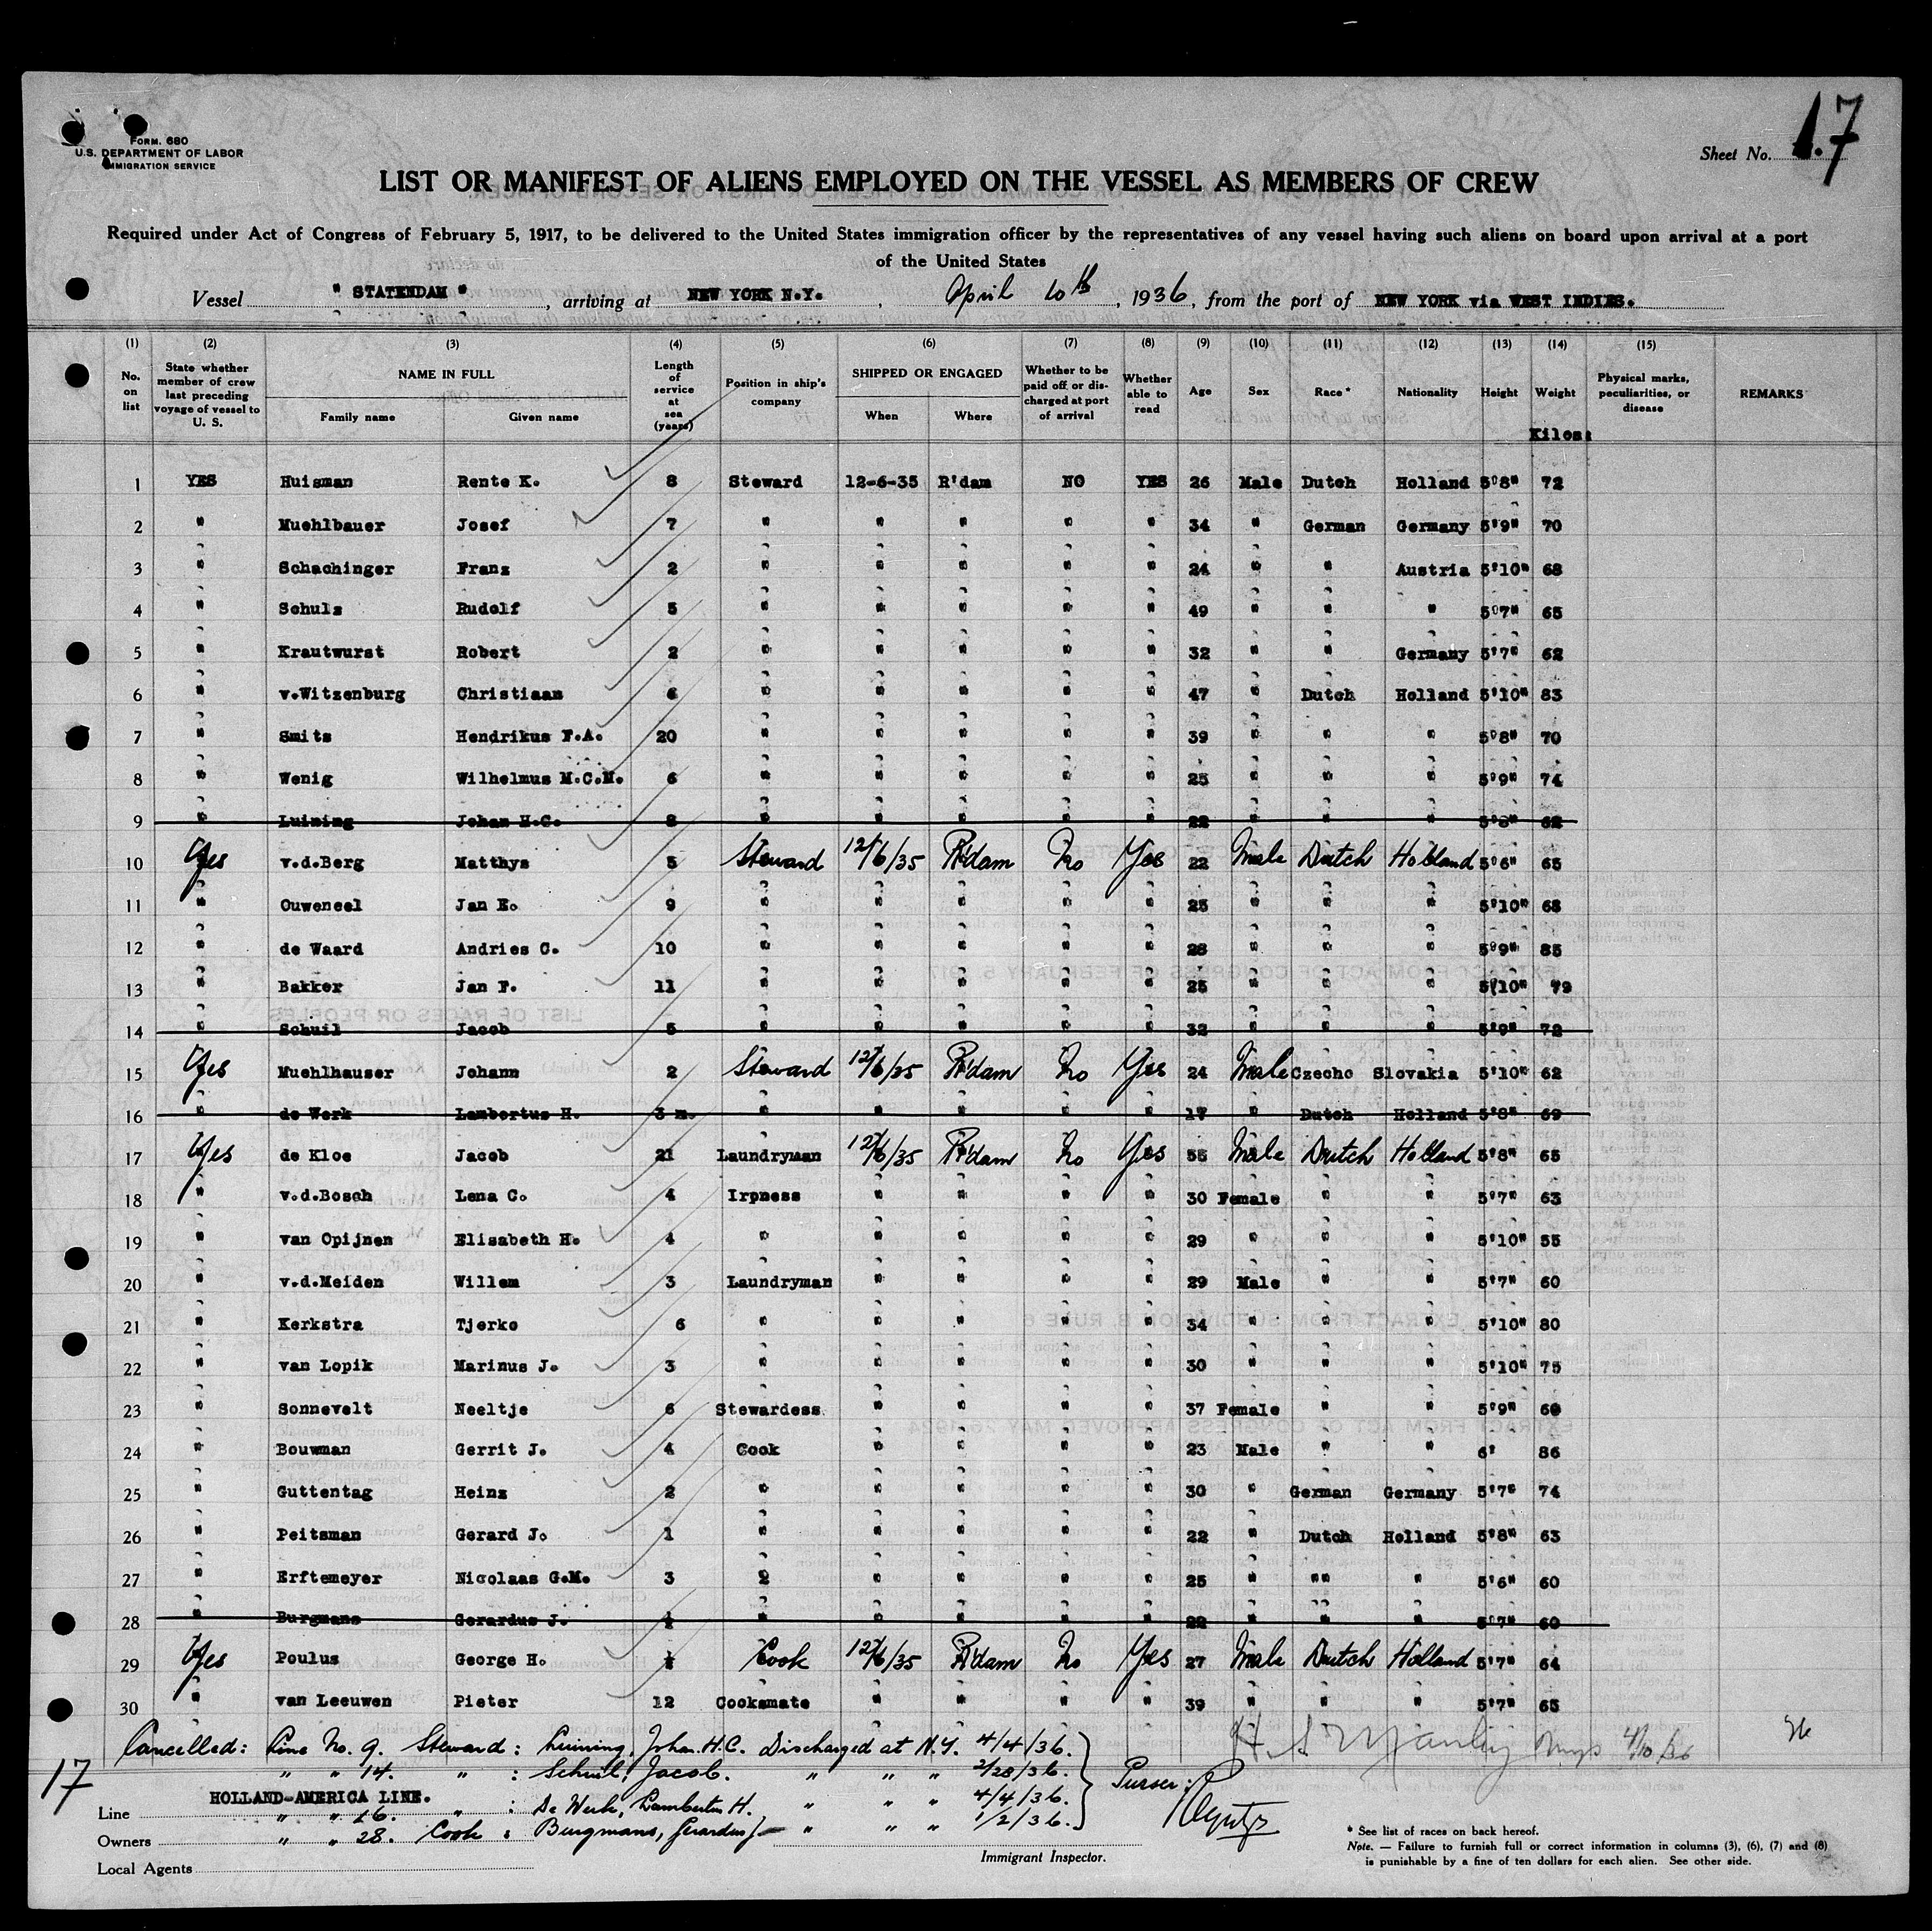 FORM. 680
U.S. DEPARTMENT OF LABOR
IMMIGRATION SERVICE
Sheet No. 17
LIST OR MANIFEST OF ALIENS EMPLOYED ON THE VESSEL AS MEMBERS OF CREW
Required under Act of Congress of February 5, 1917, to be delivered to the United States immigration officer by the representatives of any vessel having such aliens on board upon arrival at a port
of the United States
Vessel " STATENDAM ", arriving at NEW YORK N.Y., April 10th, 1936, from the port of NEW YORK via WEST INDIES.
(1) (2) (3) (4) (5) (6) (7) (8) (9) (10) (11) (12) (13) (14) (15)
No. on list State whether member of crew last preceding voyage of vessel to U. S. NAME IN FULL Family name Given name Length of service at sea (years) Position in ship's company SHIPPED OR ENGAGED When Where Whether to be paid off or discharged at port of arrival Whether able to read Age Sex Race * Nationality Height Weight Physical marks, peculiarities, or disease REMARKS
Kilos:
1 YES Huisman Rente K. 8 Steward 12-6-35 R'dam NO YES 26 Male Dutch Holland 5'8" 72
2 " Muehlbauer Josef 7 " " " " " 34 " German Germany 5'9" 70
3 " Schachinger Franz 2 " " " " " 24 " " Austria 5'10" 68
4 " Schulz Rudolf 5 " " " " " 49 " " " 5'7" 65
5 " Krautwurst Robert 2 " " " " " 32 " " Germany 5'7" 62
6 " v.Witzenburg Christiaan 6 " " " " " 47 " Dutch Holland 5'10" 83
7 " Smits Hendrikus F.A. 20 " " " " " 39 " " " 5'8" 70
8 " Wenig Wilhelmus M.C.M. 6 " " " " " 25 " " " 5'9" 74
9 " Luining Johan H.C. 8 " " " " " 22 " " " 5'8" 62
10 Yes v.d.Berg Matthys 5 Steward 12/6/35 R'dam No Yes 22 Male Dutch Holland 5'6" 65
11 " Ouweneel Jan E. 9 " " " " " 25 " " " 5'10" 68
12 " de Waard Andries C. 10 " " " " " 28 " " " 5'9" 85
13 " Bakker Jan F. 11 " " " " " 25 " " " 5'10" 79
14 " Schuil Jacob 5 " " " " " 32 " " " 5'9" 72
15 Yes Muehlhauser Johann 2 Steward 12/6/35 R'dam No Yes 24 Male Czecho Slovakia 5'10" 62
16 " de Werk Lambertus H. 3 m. " " " " " 17 " Dutch Holland 5'8" 69
17 Yes de Kloe Jacob 21 Laundryman 12/6/35 R'dam No Yes 55 Male Dutch Holland 5'8" 65
18 " v.d.Bosch Lena C. 4 Irpness " " " " 30 Female " " 5'7" 63
19 " van Opijnen Elisabeth H. 4 " " " " " 29 " " " 5'10" 55
20 " v.d.Meiden Willem 3 Laundryman " " " " 29 Male " " 5'7" 60
21 " Kerkstra Tjerke 6 " " " " " 34 " " " 5'10" 80
22 " van Lopik Marinus J. 3 " " " " " 30 " " " 5'10" 75
23 " Sonnevelt Neeltje 6 Stewardess " " " " 37 Female " " 5'9" 60
24 " Bouwman Gerrit J. 4 Cook " " " " 23 Male " " 6' 86
25 " Guttentag Heinz 2 " " " " " 30 " German Germany 5'7" 74
26 " Peitsman Gerard J. 1 " " " " " 22 " Dutch Holland 5'8" 63
27 " Erftemeyer Nicolaas G.M. 3 " " " " 25 " "" " 5'6" 60
28 " Burgmans Gerardus J. " " " " " 22 " " " 5'7" 60
29 Yes Poulus George H. Cook 12/6/35 R'dam No Yes 27 Male Dutch Holland 5'7" 64
30 " van Leeuwen Pieter 12 Cooksmate " " " " 39 " " " 5'7" 65
Cancelled: Line No. 9. Steward: Luining, Johan. H.C. Discharged at N.Y. 4/4/36.
" " 14. " : Schuil, Jacob. " " " 2/28/36.
" " 16. " : De Werk, Lambertus H. " " " 4/4/36.
" " 28. Cook : Burgmans, Gerardus J. " " " 1/2/36.
Purser:
4/10/36
17
Line HOLLAND-AMERICA LINE.
Owners
Local Agents
Immigrant Inspector.
* See list of races on back hereof.
Note. — Failure to furnish full or correct information in columns (3), (6), (7) and (8)
is punishable by a fine of ten dollars for each alien. See other side.